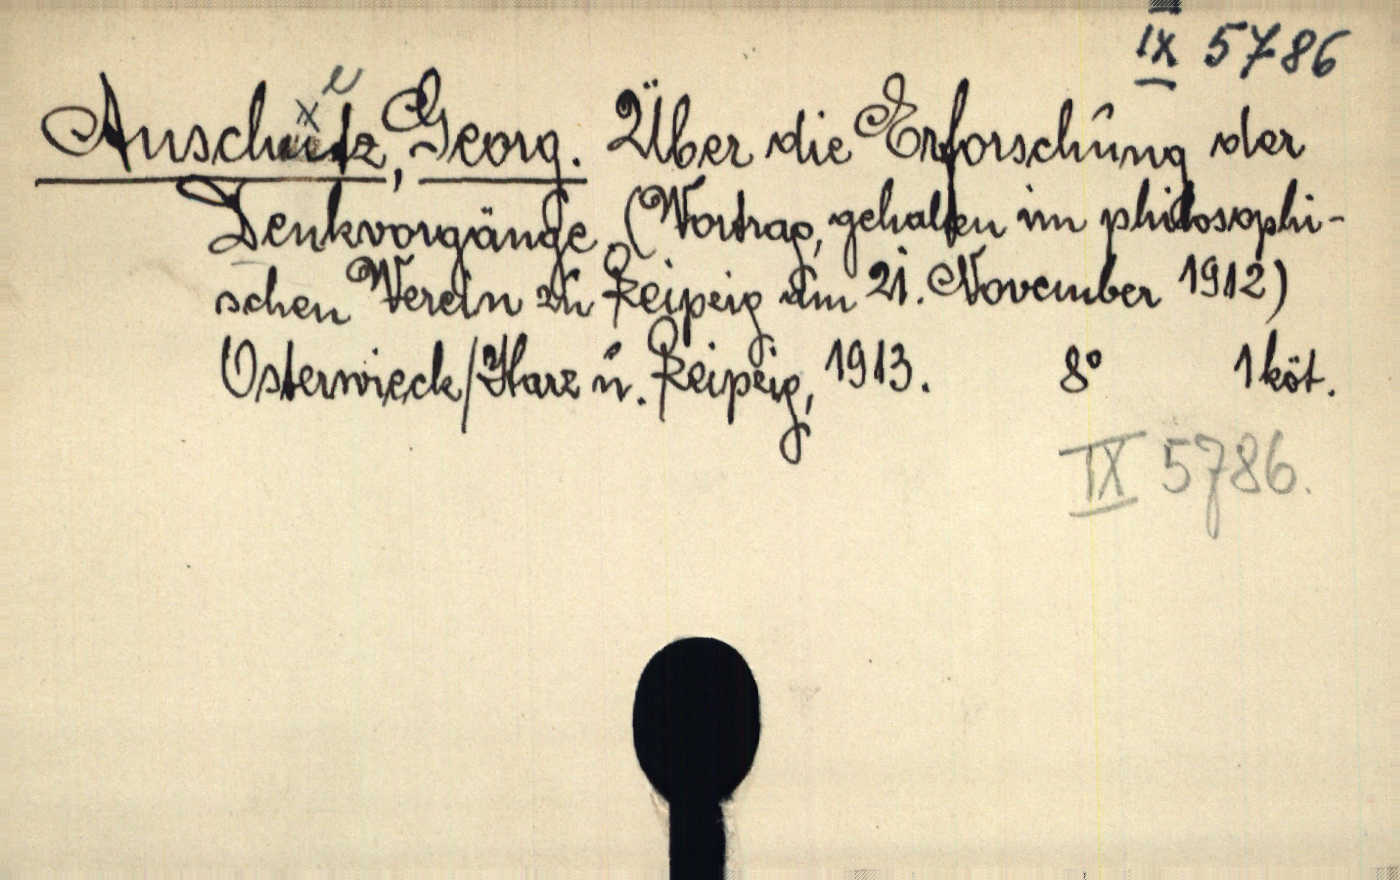 IX 5786
Anschütz, Georg. Über die Erforschung der
Denkvorgänge. (Vortrag, gehalten im philosophi-
schen Verein zu Leipzig am 21. November 1912)
Osterwieck/Harz u. Leipzig, 1913. 8° 1 köt.
IX 5786.